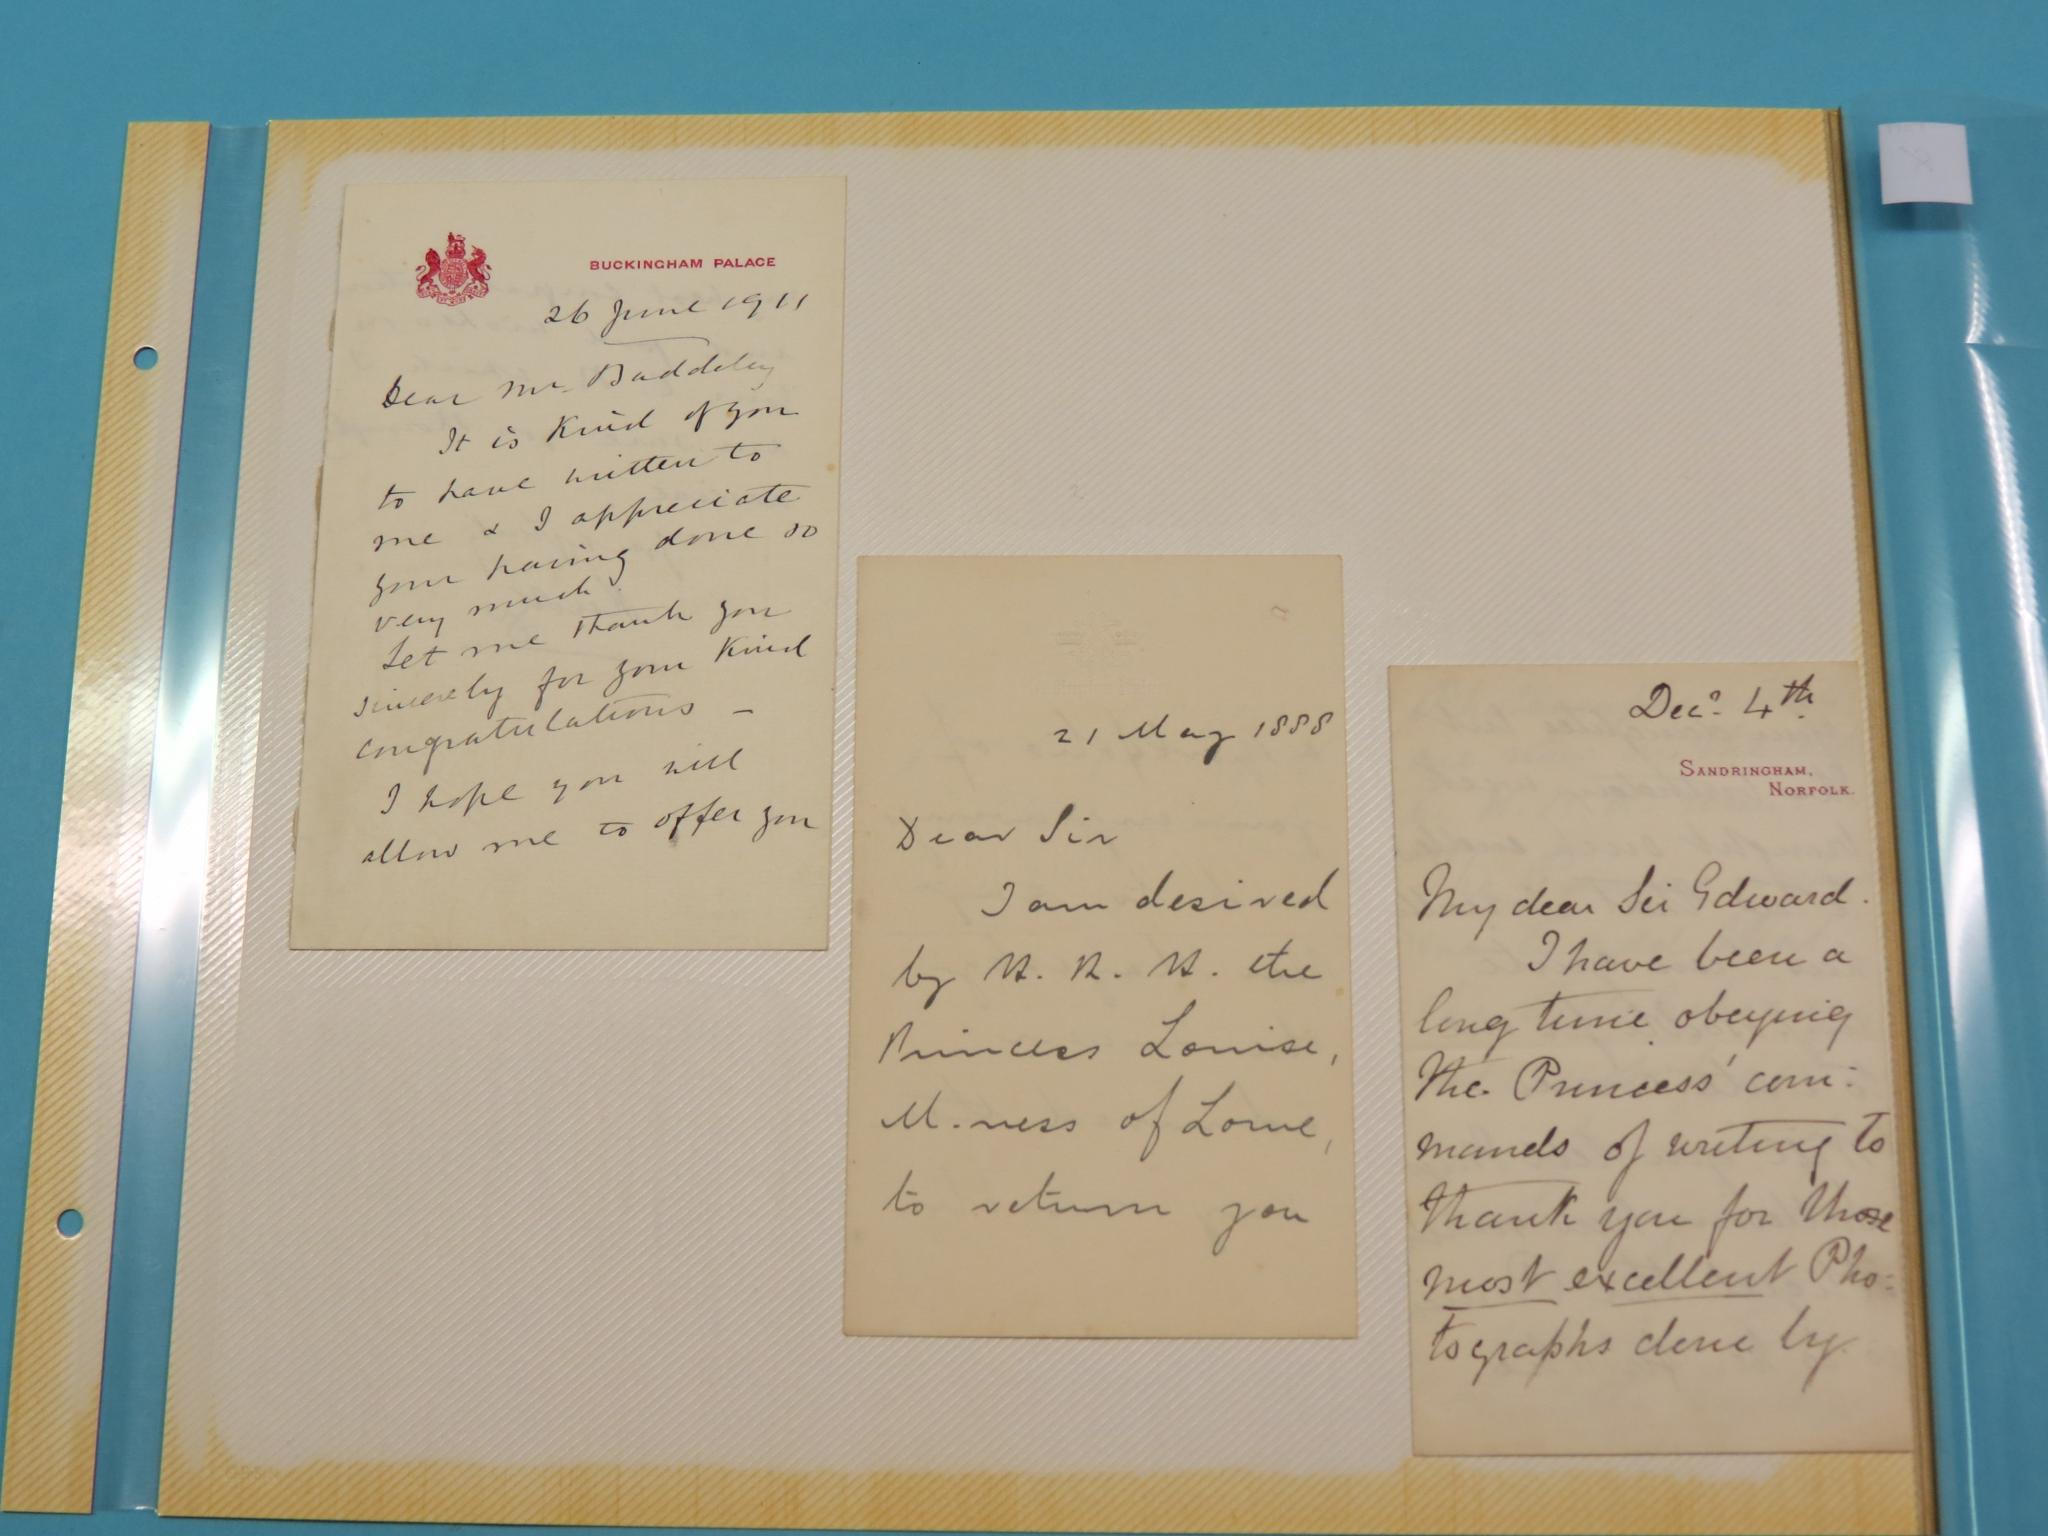 BUCKINGHAM PALACE
26 June 1911
Dear Mr. Baddeley
It is kind of you
to have written to
me & I appreciate
your having done so
very much.
Let me thank you
sincerely for your kind
congratulations –
I hope you will
allow me to offer you
21 May 1888
Dear Sir
I am desired
by H. R. H. the
Princess Louise,
M.ness of Lorne,
to return you
Decr. 4th.
SANDRINGHAM,
NORFOLK.
My dear Sir Edward.
I have been a
long time obeying
The Princess' com:
mands of writing to
thank you for those
most excellent Pho:
tographs done by